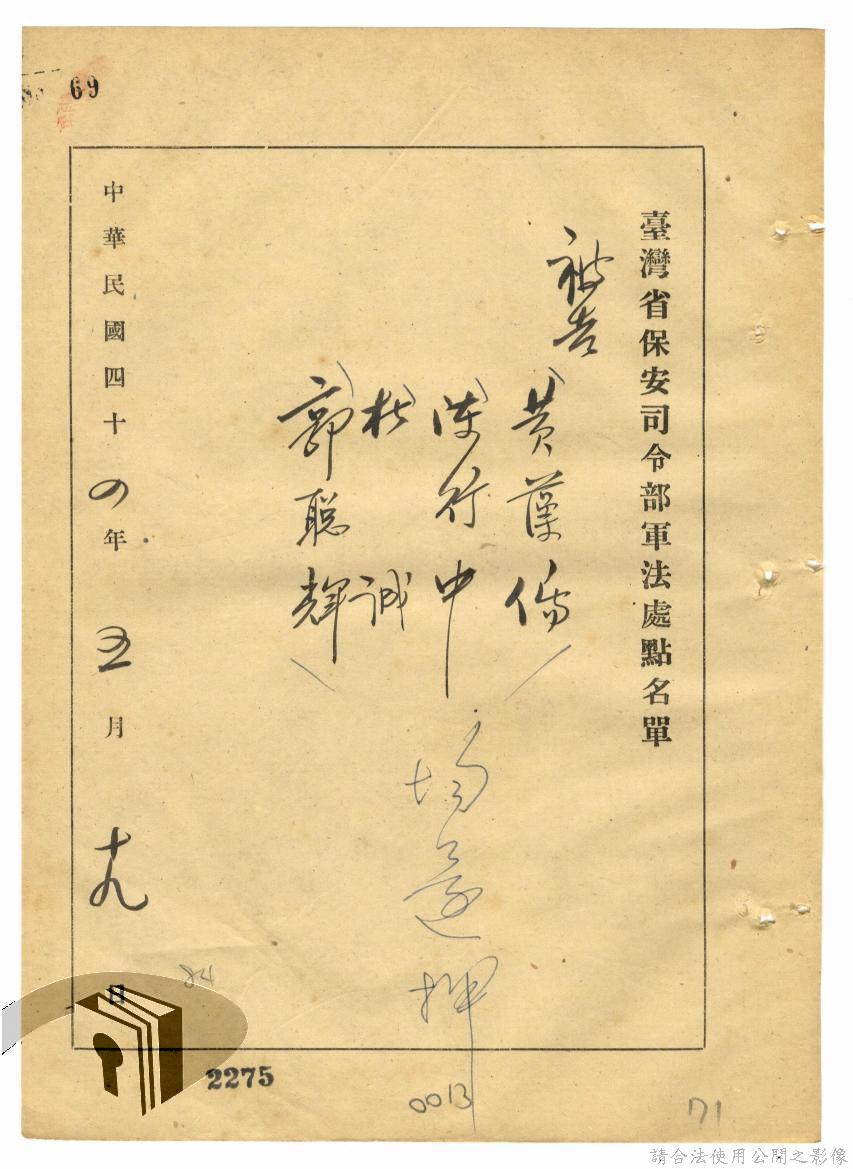 69
臺灣省保安司令部軍法處點名單
被告
黃藻儒
陳行中
誠
郭聰輝
均還押
中華民國四十四年五月十九日
84
2275
0013
71
請合法使用公開之影像